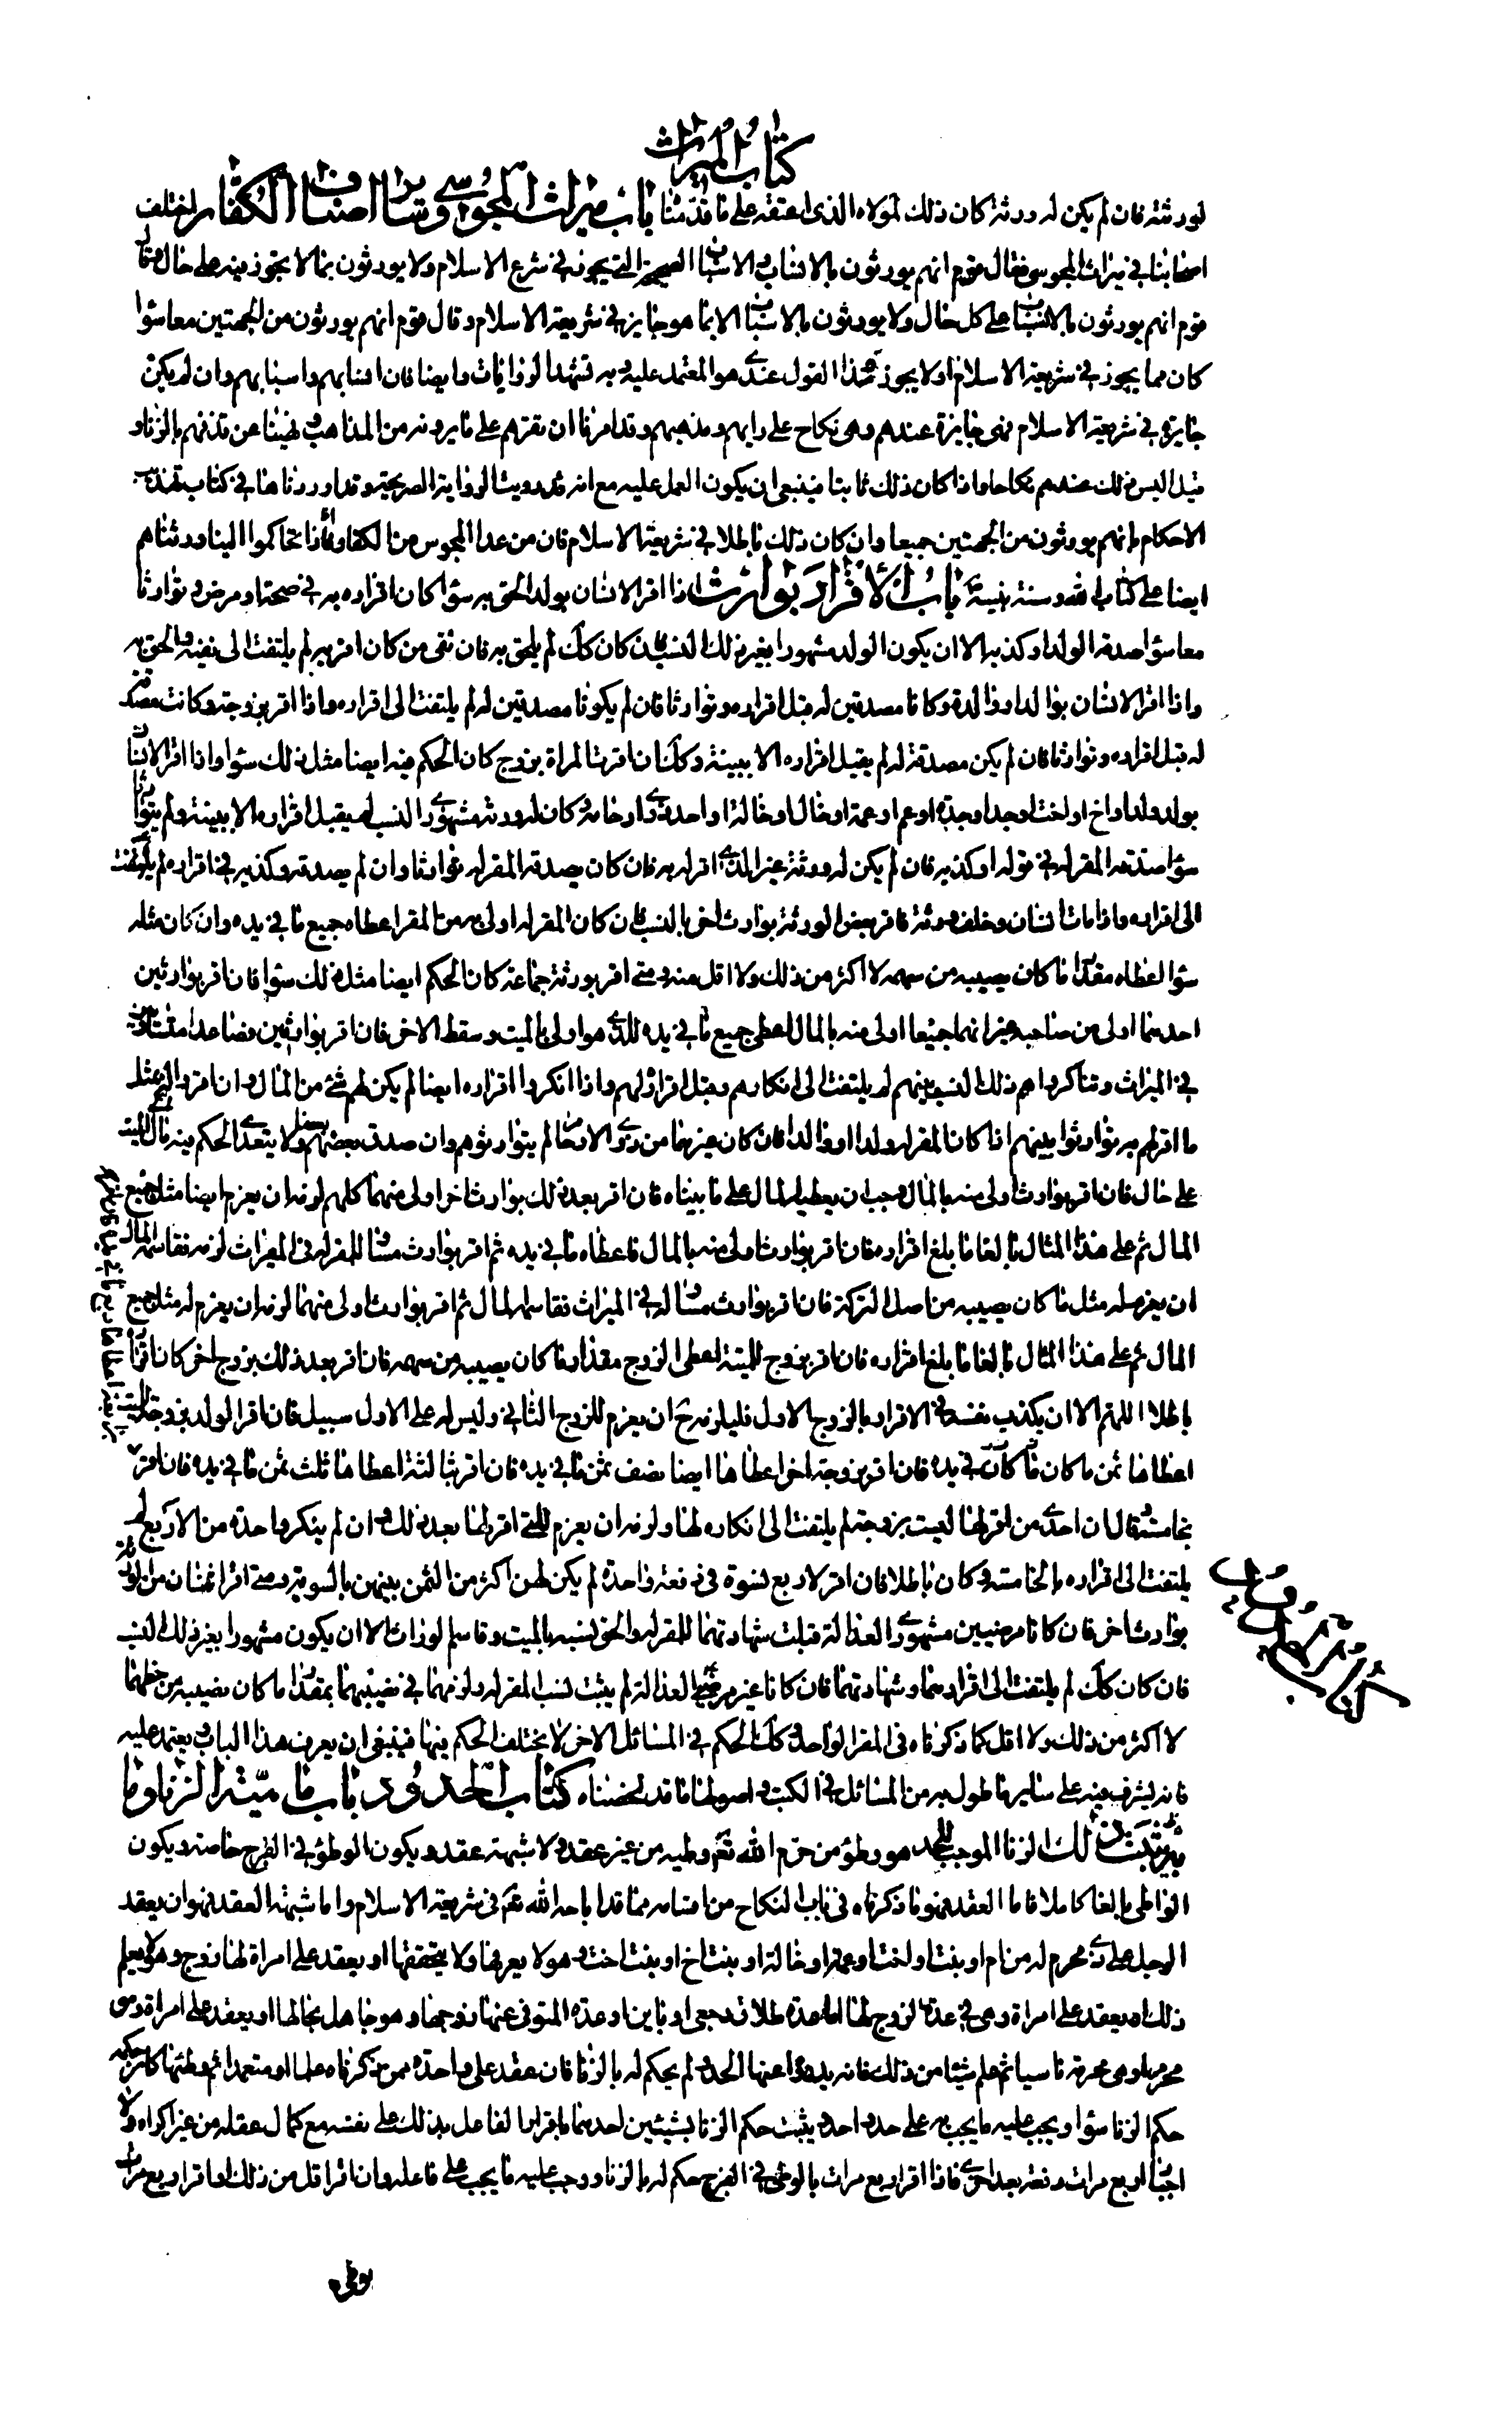 كتاب الميراث
لورثته فان لم يكن له ورثة كان ذلك لمولاه الذى اعتقه على ما قدمنا باب ميراث المجوسى وسائر اصناف الكفار اختلف
اصحابنا فى ميراث المجوسى فقال قوم انهم يورثون بالانساب والاسباب الصحيحة التى يجوز فى شرع الاسلام ولا يورثون بما لا يجوز فيه على حال وقال
قوم انهم يورثون بالانساب على كل حال ولا يورثون بالاسباب الا بما هو جايز فى شريعة الاسلام وقال قوم انهم يورثون من الجهتين معا سواء
كان مما يجوز فى شريعة الاسلام او لا يجوز وهذا القول عندى هو المعتمد عليه وبه تشهد الروايات وايضا فان انسابهم واسبابهم وان لم يكن
جايزة فى شريعة الاسلام فهى جايزة عندهم وهى نكاح على رايهم ومذهبهم وقد امرنا ان نقرهم على ما يرونه من المذاهب ونهينا عن قذفهم بالزنا و
قيل اليس ذلك عندهم نكاحا واذا كان ذلك ثابتا فينبغى ان يكون العمل عليه مع انه قد رويت الرواية الصريحة وقد اوردناها فى كتاب تهذيب
الاحكام بانهم يورثون من الجهتين جميعا وان كان ذلك باطلا فى شريعة الاسلام فان من عدا المجوس من الكفار فاذا تحاكموا الينا ورثناهم
ايضا على كتاب الله وسنة نبيه باب الاقرار بوارث اذا اقر الانسان بولد الحق به سواء كان اقراره به فى صحته او مرض وتوارثا
معا سواء صدقه الولد او كذبه الا ان يكون الولد مشهورا بغير ذلك النسب فان كان كك لم يلحق به فان نفى من كان اقر به لم يلتفت الى نفيه والحق به
واذا اقر الانسان بوالد او والدة وكانا مصدقين له قبل اقراره وتوارثا فان لم يكونا مصدقين له لم يلتفت الى اقراره واذا اقر بزوجة وكانت مصدقة
له قبل اقراره وتوارثا فان لم يكن مصدقة له لم يقبل اقراره الا ببينة وكك ان اقرت المراة بزوج كان الحكم فيه ايضا مثل ذلك سواء واذا اقر الانسان
بولد ولد او اخ او اخت او جد او جدة او عم او عمة او خال او خالة او احد ذوى ارحامه وكان له ورثة مشهورى النسب لم يقبل اقراره الا ببينة ولم يتوارثا
سواء صدقه المقر له فى قوله او كذبه فان لم يكن له ورثة غير الذى اقر له به فان كان يصدقه المقر له توارثا وان لم يصدقه وكذبه فى اقراره لم يلتفت
الى اقراره واذا مات انسان وخلف ورثة فاقر بعض الورثة بوارث اخر بالنسب فان كان المقر له اولى به من المقر اعطاه جميع ما فى يده وان كان مثله
سواء اعطاه مقدار ما كان يصيبه من سهمه لا اكثر من ذلك ولا اقل منه ومتى اقر بورثة جماعة كان الحكم ايضا مثل ذلك سواء فان اقر بوارثين
احدهما اولى من صاحبه غير انهما جميعا اولى منه بالمال اعطى جميع ما فى يده للذى هو اولى بالميت وسقط الاخر فان اقر بوارثين فصاعدا متساويين
فى الميراث وتناكروا هم ذلك النسب بينهم لم يلتفت الى انكارهم وقبل اقراره لهم واذا انكروا اقراره ايضا لم يكن لهم شئ من المال وان اقروا له بمثل
ما اقر لهم به توارثوا بينهم اذا كان المقر له ولدا او والدا فان كان غيرهما من ذوى الارحام لم يتوارثوهم وان صدق بعضهم بعضا ولا يتعدى الحكم فيه مال الميت
على حال فان اقر بوارث اولى منه بالمال وجب ان يعطيه المال على ما بيناه فان اقر بعد ذلك بوارث اخر اولى منهما كلهم لزمه ان يغرم ايضا مثل جميع
المال ثم على هذا المثال بالغا ما بلغ اقراره فان اقر بوارث اولى منه بالمال فاعطاه ما فى يده ثم اقر بوارث مساو للمقر له فى الميراث لزمه نقاسمه المال
ان يغرم له مثل ما كان يصيبه من اصل التركة فان اقر بوارث مساو له فى الميراث نقاسمه المال ثم اقر بوارث اولى منهما لزمه ان يغرم له مثل جميع
المال ثم على هذا المثال بالغا ما بلغ اقراره فان اقر بزوج للميتة اعطى الزوج مقدار ما كان يصيبه من سهمه فان اقر بعد ذلك بزوج اخر كان اقراره
باطلا اللهم الا ان يكذب نفسه فى الاقرار بالزوج الاول فليلزمه ح ان يغرم للزوج الثانى وليس له على الاول سبيل فان اقر الولد بزوجة للميت
اعطاها ثمن ما كان فى يده فان اقر بزوجة اخرى اعطاها ايضا نصف ثمن ما فى يده فان اقر بثالثة اعطاها ثلث ثمن ما فى يده فان اقر
بخامسة وقال ان احدى من اقر لها ليست بزوجة لم يلتفت الى انكاره لها ولزمه ان يغرم للتى اقر لها بعد ذلك وان لم ينكر واحدة من الاربع لم
يلتفت الى اقراره بالخامسة وكان باطلا فان اقر لاربع نسوة فى دفعة واحدة لم يكن لهن اكثر من الثمن بينهن بالسوية ومتى اقر اثنان من الورثة
بوارث اخر فان كانا مرضيين مشهورى العدالة قبلت شهادتهما للمقر له والحق نسبه بالميت وقاسم الوراث الا ان يكون مشهورا بغير ذلك النسب
فان كان كك لم يلتفت الى اقرارهما وشهادتهما فان كانا غير مرضيى العدالة لم يثبت نسب المقر له ولزمهما فى نصيبهما بمقدار ما كان نصيبه من حظهما
لا اكثر من ذلك ولا اقل كما ذكرناه فى المقر الواحد وكك الحكم فى المسائل الاخر لا يختلف الحكم فيها فينبغى ان يعرف هذا الباب ويعتمد عليه
فانه يشرف منه على ساير ما طول به من المسائل فى الكتب واصولها ما قد لخصناه كتاب الحدود باب ماهية الزنا وما
يثبت به ذلك الزنا الموجب للحد هو وطؤ من حرم الله تعم وطيه من غير عقد ولا شبهة عقد ويكون الوطؤ فى الفرج خاصة ويكون
الواطى بالغا كاملا فاما العقد فهو ما ذكرناه فى باب النكاح من اقسامه مما قد اباحه الله تعم فى شريعة الاسلام واما شبهة العقد فهو ان يعقد
الرجل على ذى محرم له من ام او بنت او اخت او عمة او خالة او بنت اخ او بنت اخت وهو لا يعرفها ولا يتحققها او يعقد على امراة لها زوج وهو لا يعلم
ذلك او يعقد على امراة وهى فى عدة لزوج لها اما عدة طلاق رجعى او باين او عدة المتوفى عنها زوجها وهو جاهل بحالها او يعقد على امراة وهو
محرم او هى محرمة ناسيا ثم علم شيئا من ذلك فانه يدرؤا عنها الحد ولم يحكم له بالزنا فان عقد على واحدة ممن ذكرناه عالما او متعمدا ثم وطئها كان حكمه
حكم الزنا سواء ويجب عليه ما يجب به على حد واحد ويثبت حكم الزنا بشيئين احدهما باقرار الفاعل بذلك على نفسه مع كمال عقله من غير اكراه ولا
اجبار اربع مرات دفعة بعد اخرى فاذا اقر اربع مرات بالوطى فى الفرج حكم له بالزنا ووجب عليه ما يجب على فاعله وان اقر اقل من ذلك او اقر اربع مرات
بوطى
كتاب الحدود